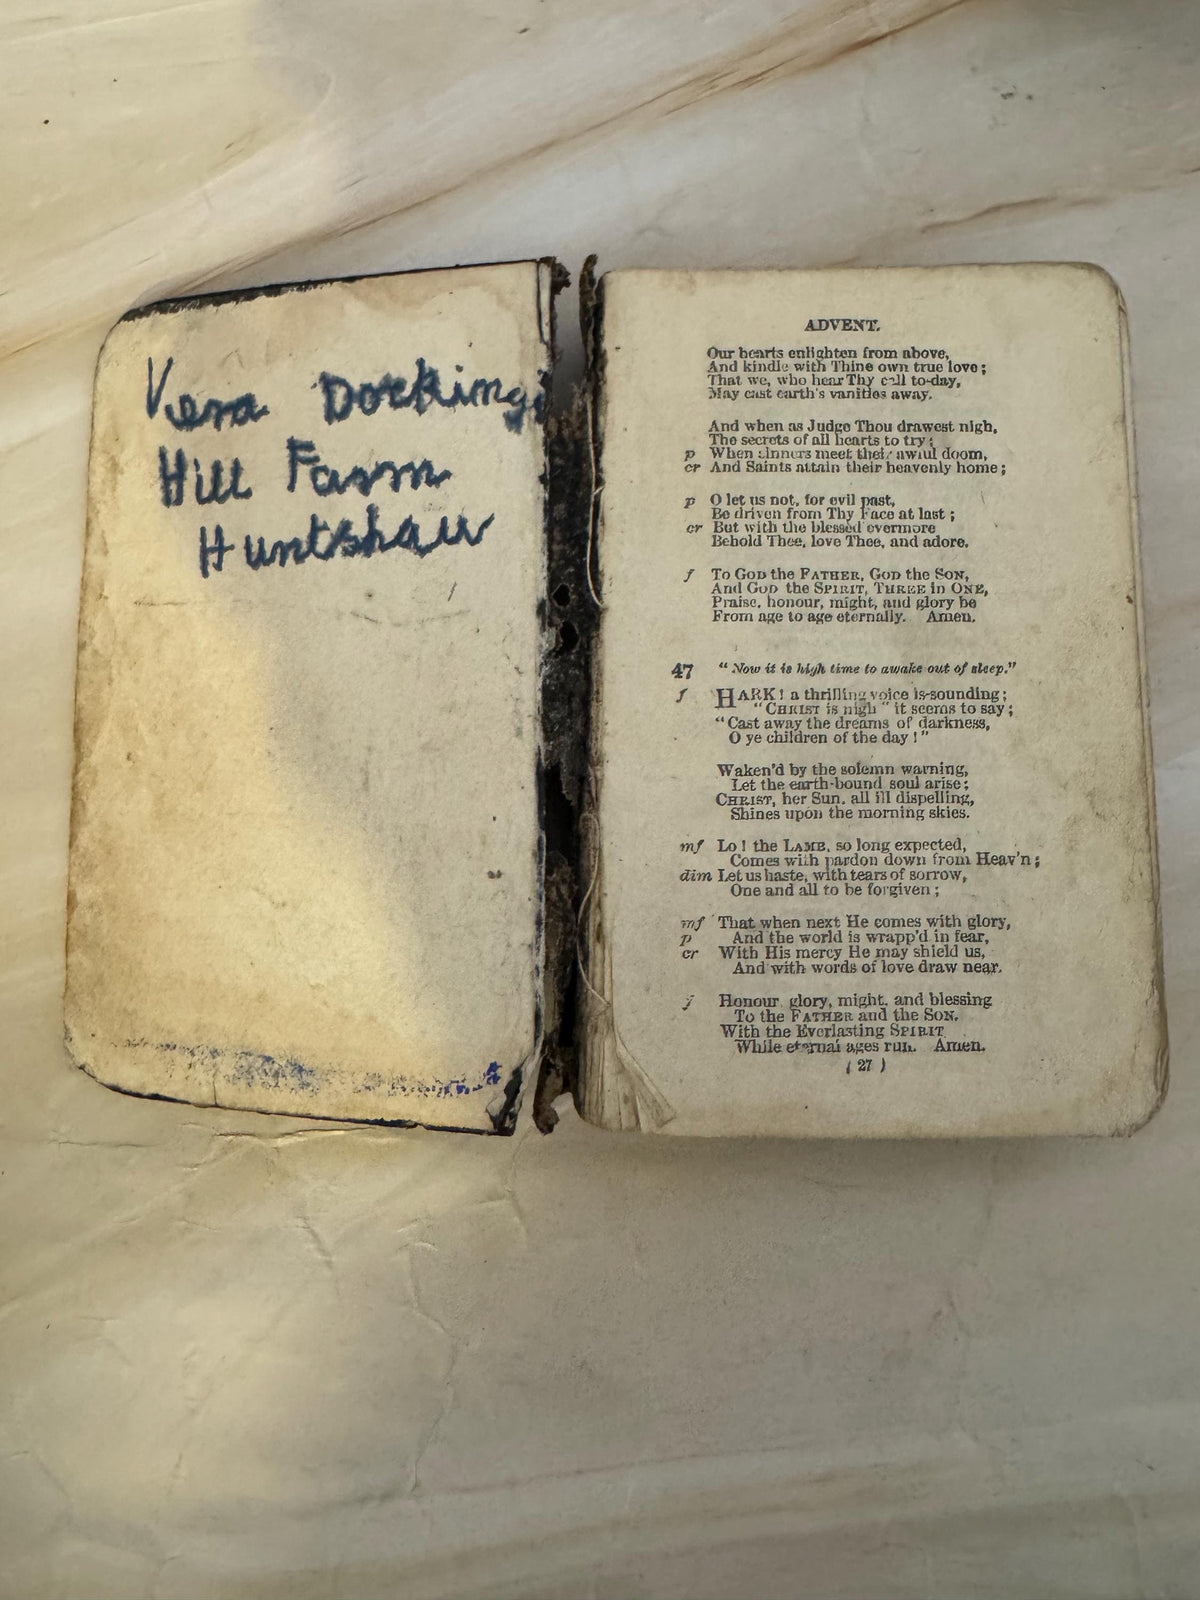 Vera Dockings
Hill Farm
Huntshaw
ADVENT.
Our hearts enlighten from above,
And kindle with Thine own true love;
That we, who hear Thy call to-day,
May cast earth's vanities away.
And when as Judge Thou drawest nigh,
The secrets of all hearts to try;
p When sinners meet their awful doom,
cr And Saints attain their heavenly home;
p O let us not, for evil past,
Be driven from Thy Face at last;
cr But with the blessed evermore
Behold Thee, love Thee, and adore.
f To GOD the FATHER, GOD the SON,
And GOD the SPIRIT, THREE in ONE,
Praise, honour, might, and glory be
From age to age eternally. Amen.
47 "Now it is high time to awake out of sleep."
f HARK! a thrilling voice is sounding;
"CHRIST is nigh" it seems to say;
"Cast away the dreams of darkness,
O ye children of the day!"
Waken'd by the solemn warning,
Let the earth-bound soul arise;
CHRIST, her Sun, all ill dispelling,
Shines upon the morning skies.
mf Lo! the LAMB, so long expected,
Comes with pardon down from Heav'n;
dim Let us haste, with tears of sorrow,
One and all to be forgiven;
mf That when next He comes with glory,
p And the world is wrapp'd in fear,
cr With His mercy He may shield us,
And with words of love draw near.
f Honour, glory, might, and blessing
To the FATHER and the SON,
With the Everlasting SPIRIT
While eternal ages run. Amen.
( 27 )